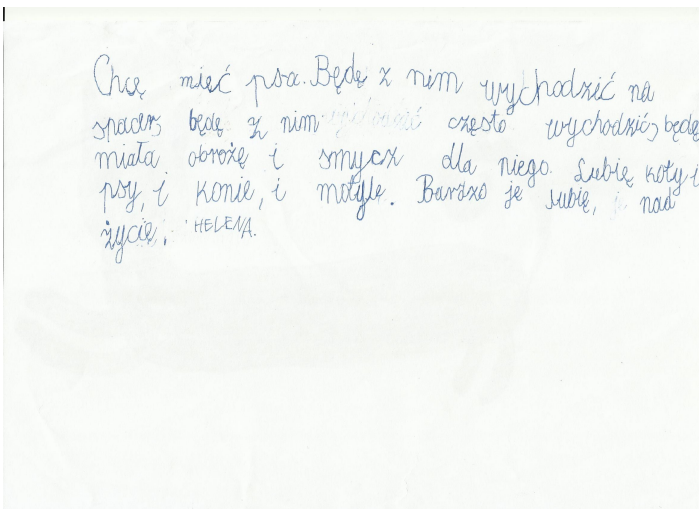 Chcę mięć psa. Będę z nim wychodzić na
spacer, będę z nim często wychodzić, będę
miała obrożę i smycz dla niego. Lubię koty i
psy, i konie, i motyle. Bardzo je lubię, nad
życię. HELENA.